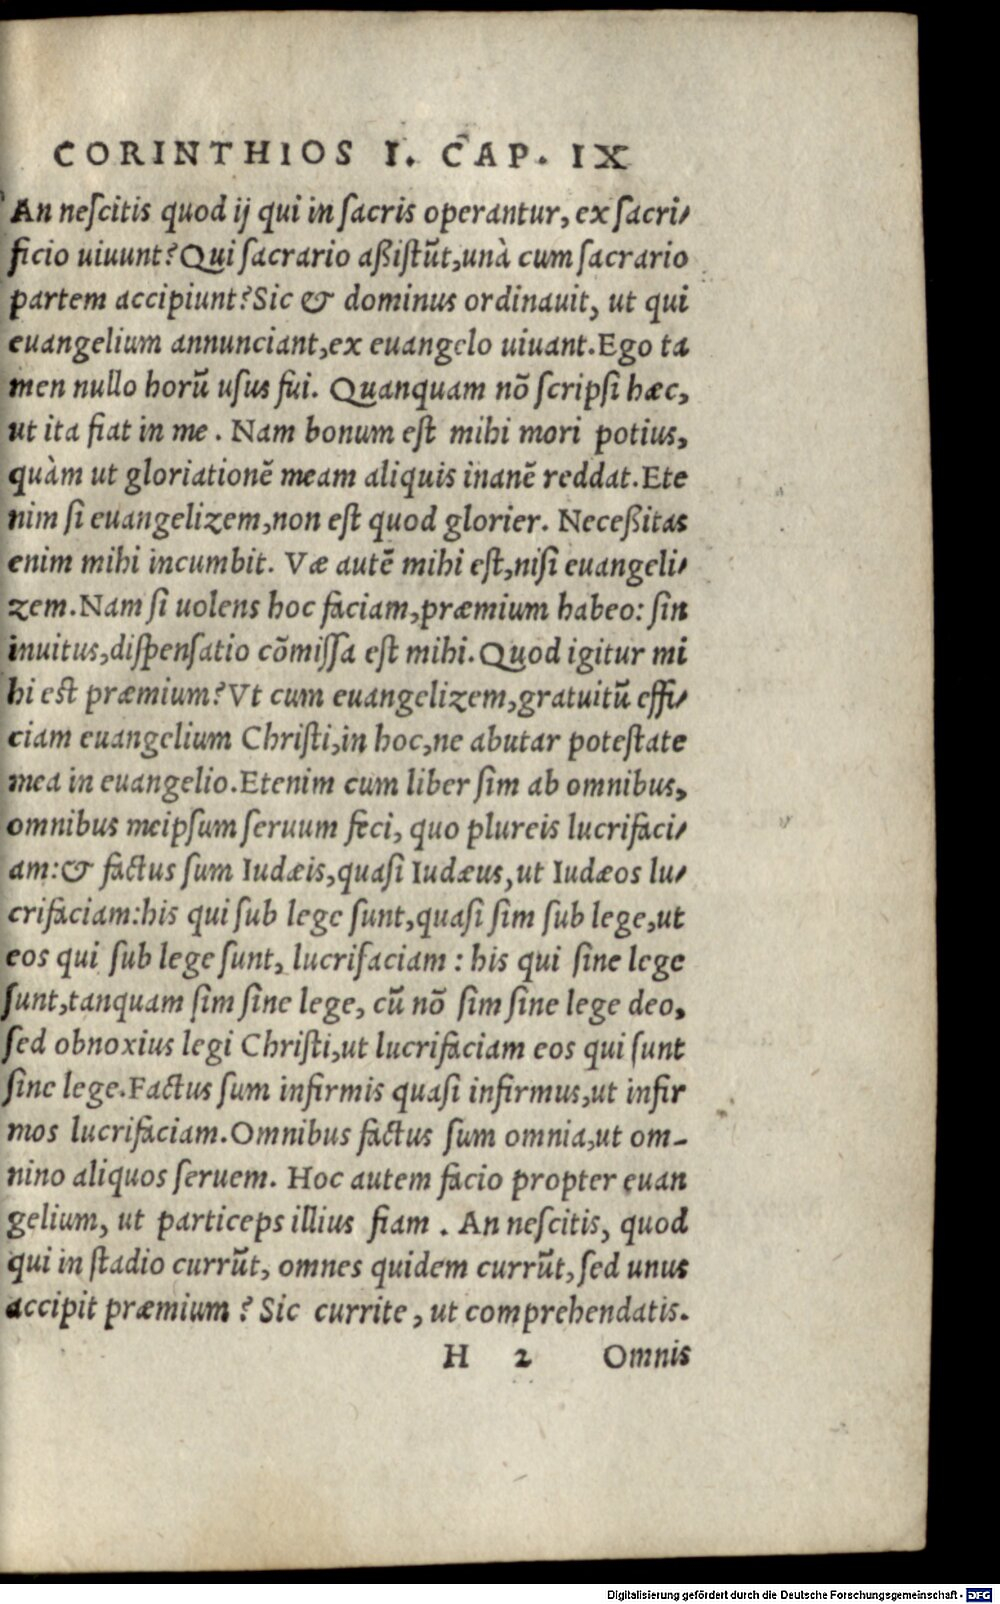 CORINTHIOS I. CAP. IX
An neſcitis quod ij qui in ſacris operantur, ex ſacri/
ficio uiuunt? Qui ſacrario aßiſtũt, unà cum ſacrario
partem accipiunt? Sic & dominus ordinauit, ut qui
euangelium annunciant, ex euangelo uiuant. Ego ta
men nullo horũ uſus fui. Quanquam nõ ſcripſi hæc,
ut ita fiat in me . Nam bonum eſt mihi mori potius,
quàm ut gloriationẽ meam aliquis inanẽ reddat. Ete
nim ſi euangelizem, non eſt quod glorier. Neceßitas
enim mihi incumbit. Væ autẽ mihi eſt, niſi euangeli/
zem. Nam ſi uolens hoc faciam, præmium habeo: ſin
inuitus, diſpenſatio cõmiſſa eſt mihi. Quod igitur mi
hi est præmium? Vt cum euangelizem, gratuitũ effi/
ciam euangelium Chriſti, in hoc, ne abutar poteſtate
mea in euangelio. Etenim cum liber ſim ab omnibus,
omnibus meipſum ſeruum feci, quo plureis lucrifaci/
am: & factus ſum Iudæis, quaſi Iudæus, ut Iudæos lu/
crifaciam: his qui ſub lege ſunt, quaſi ſim ſub lege, ut
eos qui ſub lege ſunt, lucrifaciam : his qui ſine lege
ſunt, tanquam ſim ſine lege, cũ nõ ſim ſine lege deo,
ſed obnoxius legi Chriſti, ut lucrifaciam eos qui ſunt
ſine lege. Factus ſum infirmis quaſi infirmus, ut infir
mos lucrifaciam. Omnibus factus ſum omnia, ut om-
nino aliquos ſeruem. Hoc autem facio propter euan
gelium, ut particeps illius fiam . An neſcitis, quod
qui in ſtadio currũt, omnes quidem currũt, ſed unus
accipit præmium ? Sic currite , ut comprehendatis.
H 2 Omnis
Digitalisierung gefördert durch die Deutsche Forschungsgemeinschaft - DFG